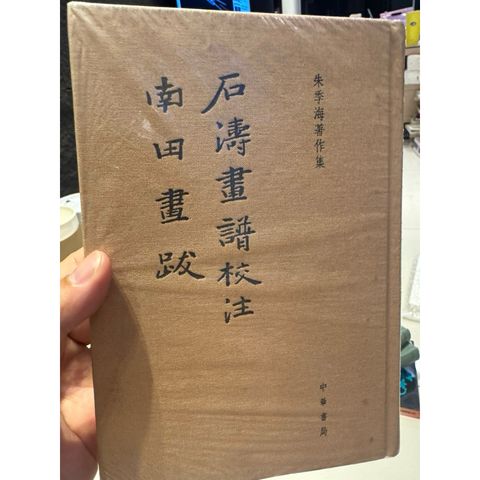 朱季海著作集
石濤畫譜校注
南田畫跋
中華書局